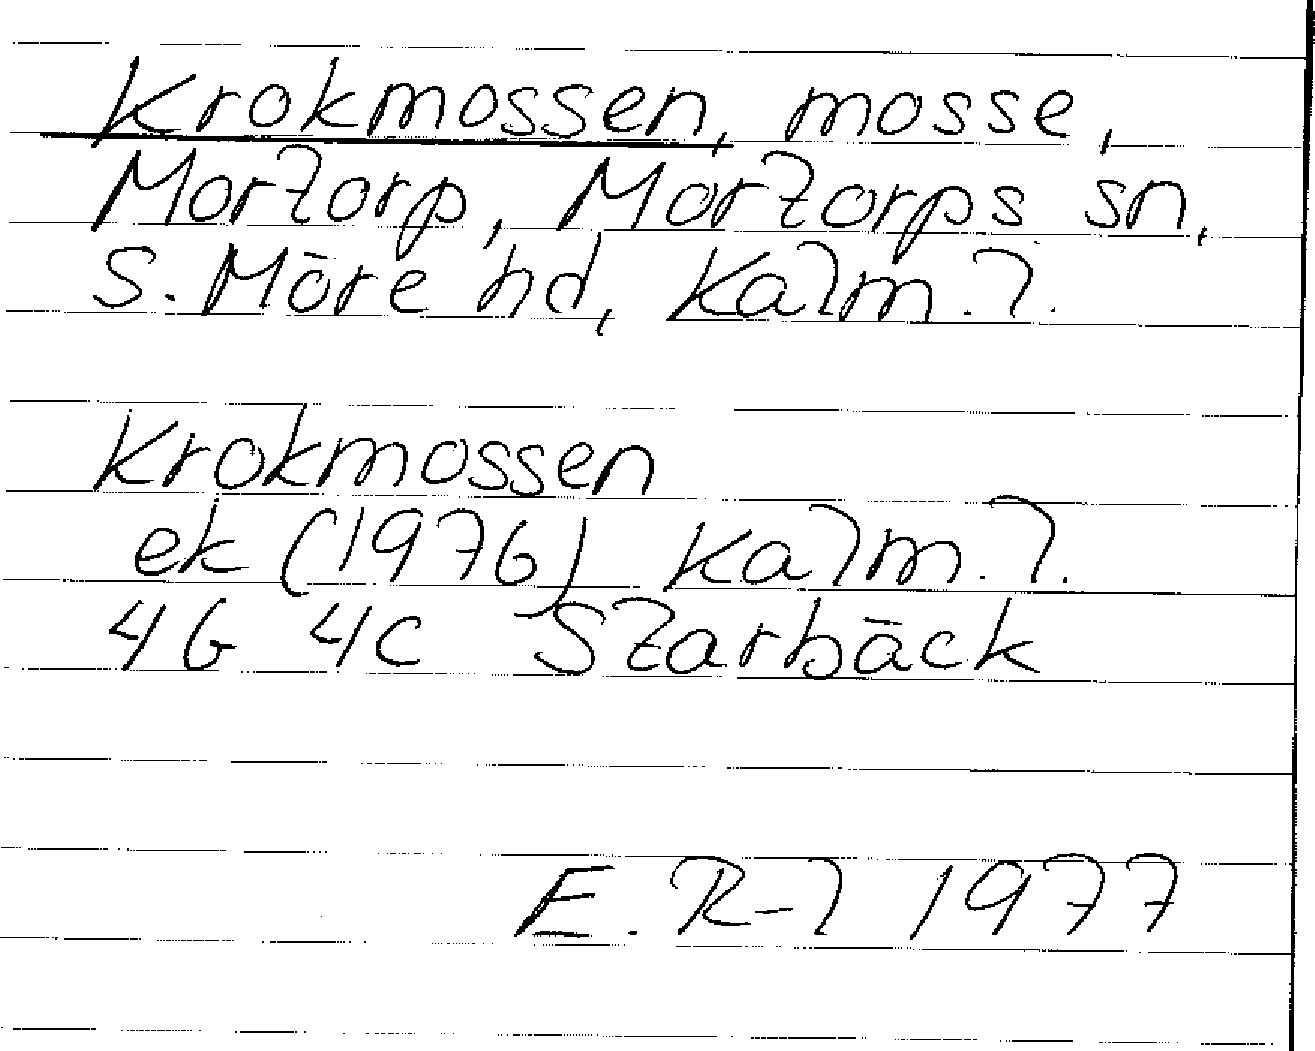 Krokmossen, mosse,
Mortorp, Mortorps sn,
S. Möre hd, Kalm. l.
Krokmossen
ek (1976) Kalm. l.
4G 4c Starbäck
E. R-l 1977